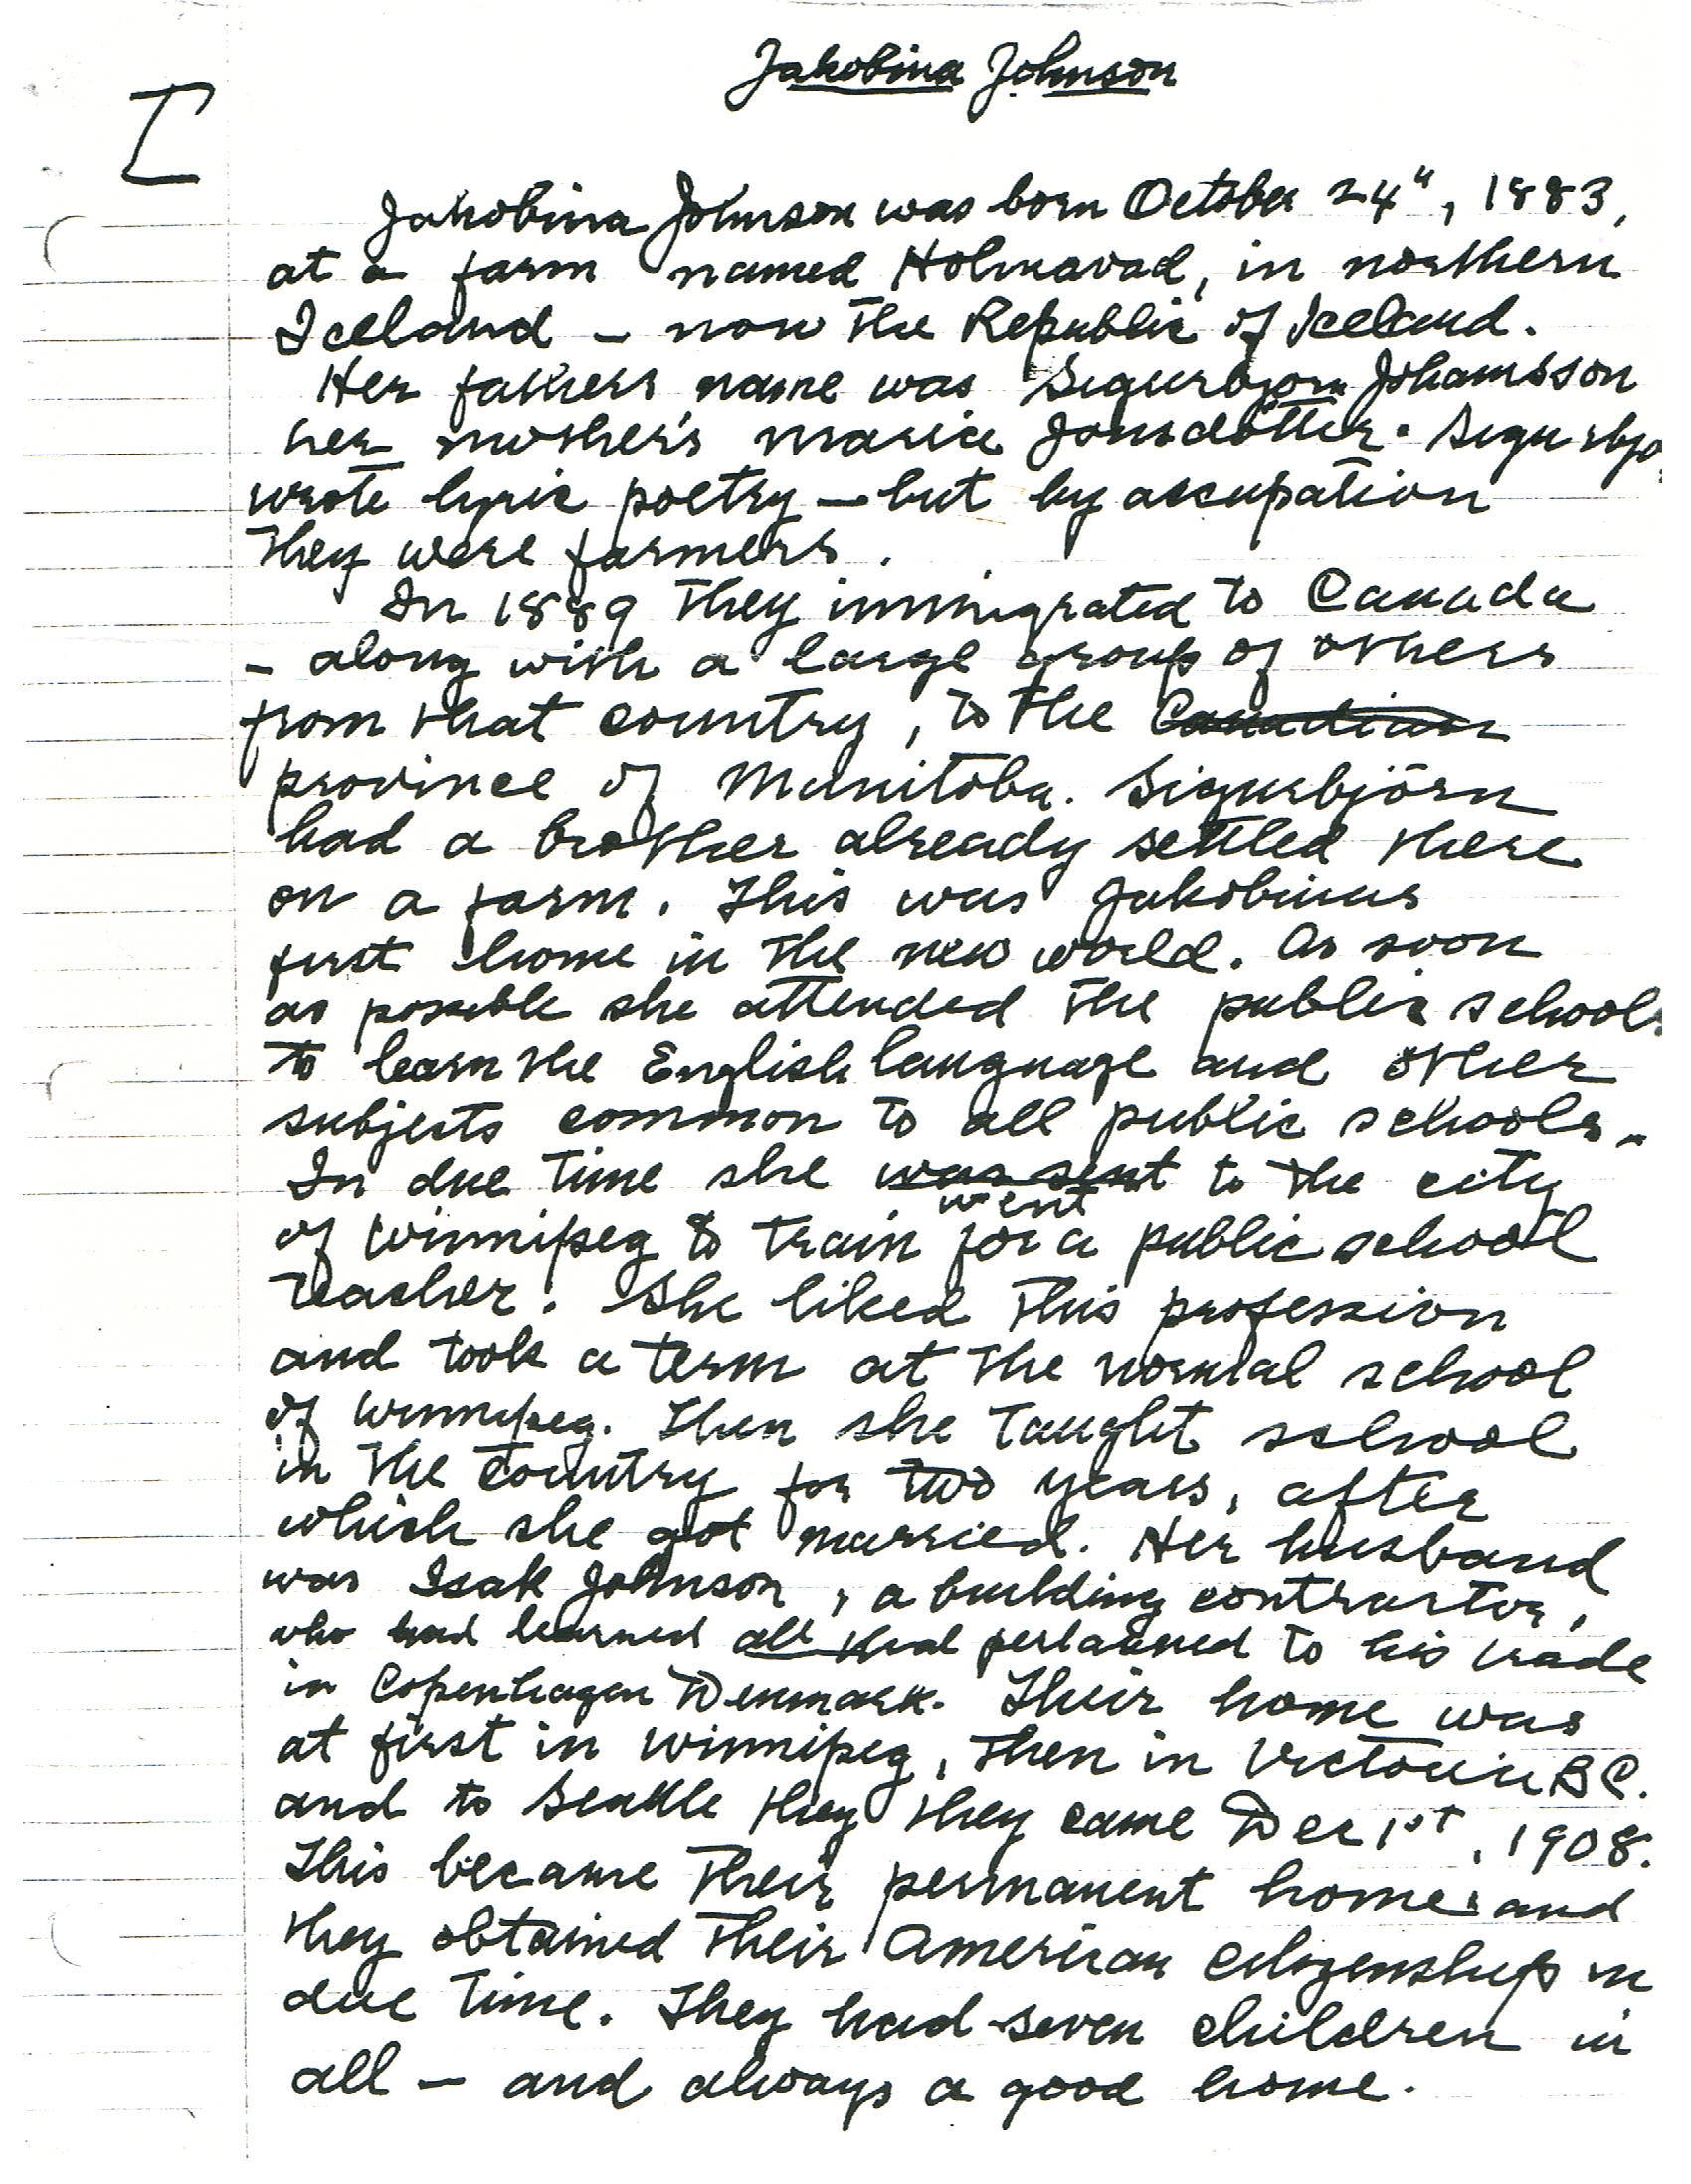 Jakobina Johnson
I
Jakobina Johnson was born October 24", 1883,
at a farm named Holmavad, in northern
Iceland – now the Republic of Iceland.
Her fathers name was Sigurbjorn Johannsson
her mother's Maria Jonsdottir. Sigurbjo
wrote lyric poetry – but by occupation
they were farmers.
In 1889 they immigrated to Canada
– along with a large group of others
from that country, to the Canadian
province of Manitoba. Sigurbjörn
had a brother already settled there
on a farm. This was Jakobinas
first home in the new world. As soon
as possible she attended the public schools
to learn the English language and other
subjects common to all public schools.
In due time she was sent to the city
went
of Winnipeg to train for a public school
teacher. She liked this profession
and took a term at the normal school
of Winnipeg. Then she taught school
in the country for two years, after
which she got married. Her husband
was Isak Johnson, a building contractor,
who had learned all that pertained to his trade
in Copenhagen Denmark. Their home was
at first in Winnipeg, then in Victoria BC.
and to Seattle they they came Dec 1st, 1908.
This became their permanent home and
they obtained their American citizenship in
due time. They had seven children in
all – and always a good home.